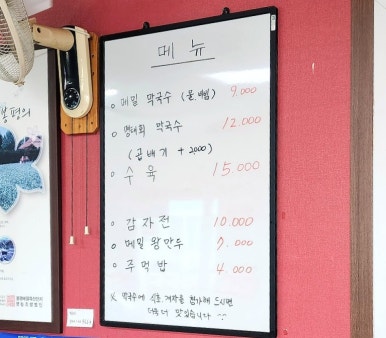 메 뉴
메밀 막국수 (물,비빔) 9.000
명태회 막국수 12.000
(곱배기 + 2000)
수육 15.000
감자전 10.000
메밀 왕만두 7.000
주먹밥 4.000
※ 막국수에 식초, 겨자를 첨가해 드시면
더욱 더 맛있습니다
봉평의